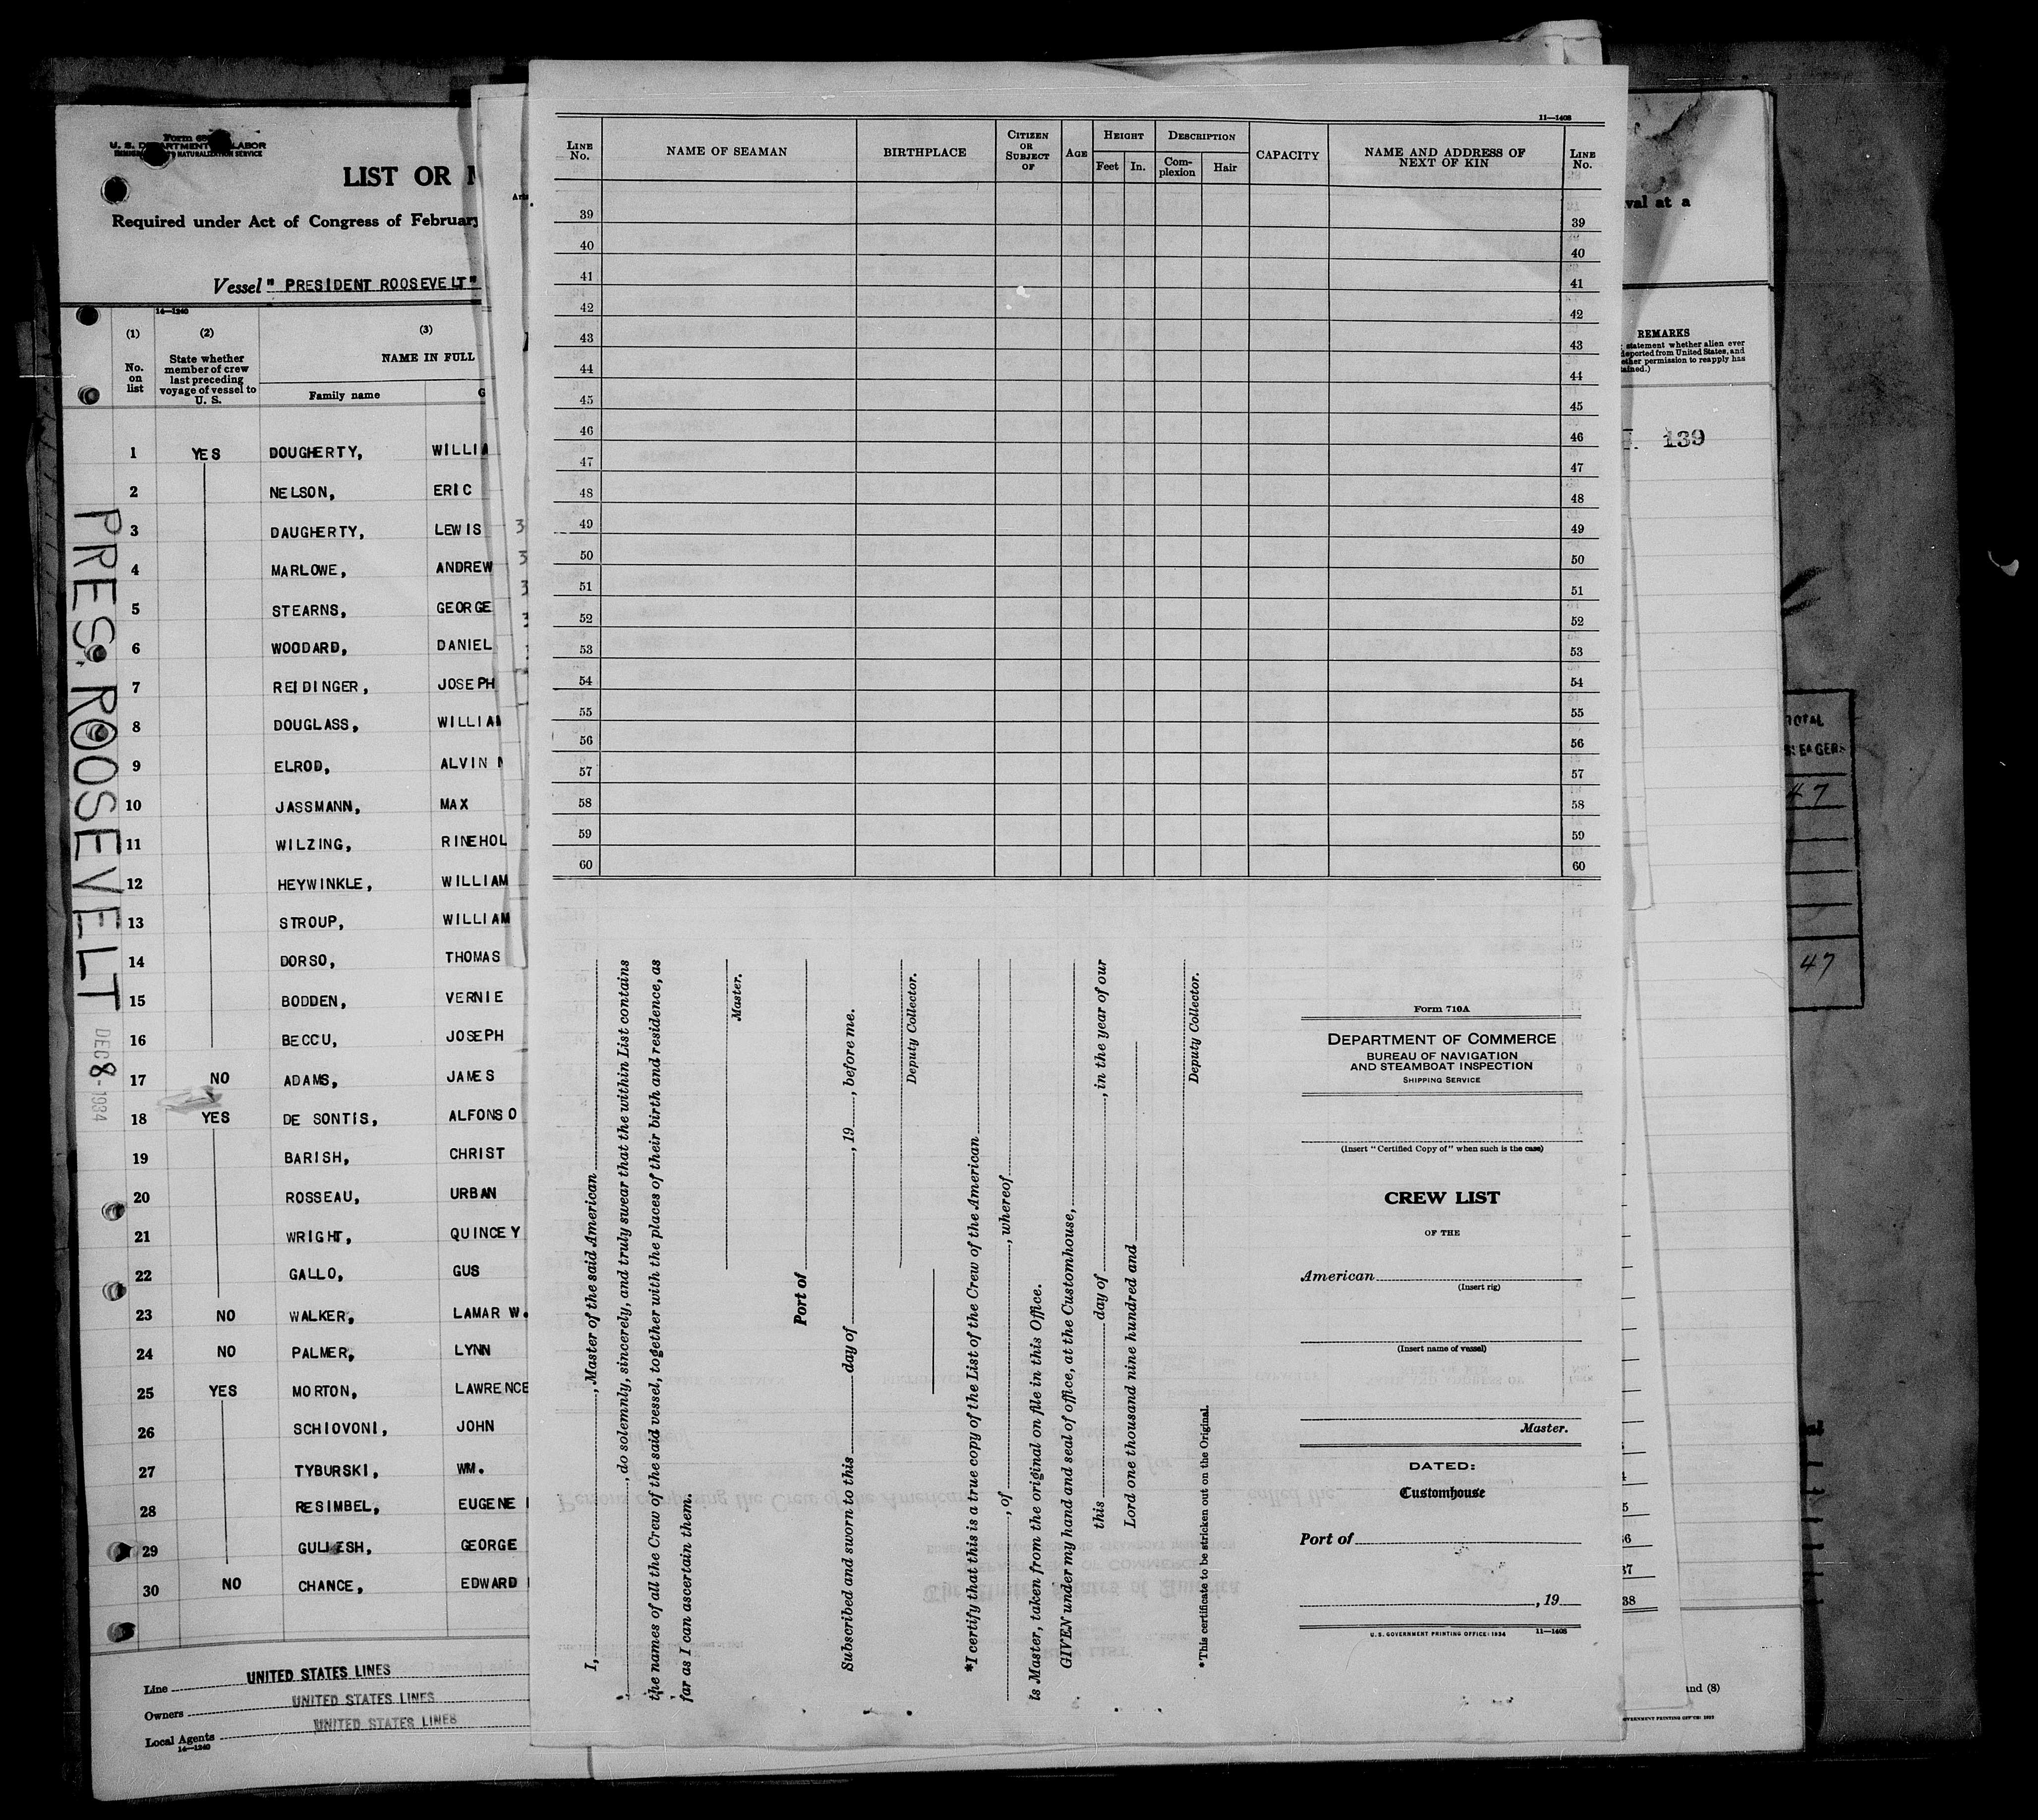 U. S. D
LABOR
LIST OR
Required under Act of Congress of February
Vessel " PRESIDENT ROOSEVELT "
14—1240
(1) (2) (3)
No. on list
State whether member of crew last preceding voyage of vessel to U. S.
NAME IN FULL
Family name G
1 YES DOUGHERTY, WILLIA
2 NELSON, ERIC
3 DAUGHERTY, LEWIS
4 MARLOWE, ANDREW
5 STEARNS, GEORGE
6 WOODARD, DANIEL
7 REIDINGER, JOSEPH
8 DOUGLASS, WILLIAM
9 ELROD, ALVIN
10 JASSMANN, MAX
11 WILZING, RINEHOL
12 HEYWINKLE, WILLIAM
13 STROUP, WILLIAM
14 DORSO, THOMAS
15 BODDEN, VERNIE
16 BECCU, JOSEPH
17 NO ADAMS, JAMES
18 YES DE SONTIS, ALFONSO
19 BARISH, CHRIST
20 ROSSEAU, URBAN
21 WRIGHT, QUINCEY
22 GALLO, GUS
23 NO WALKER, LAMAR W.
24 NO PALMER, LYNN
25 YES MORTON, LAWRENCE
26 SCHIOVONI, JOHN
27 TYBURSKI, WM.
28 RESIMBEL, EUGENE
29 GULLESH, GEORGE
30 NO CHANCE, EDWARD
PRES. ROOSEVELT
DEC 8 - 1934
Line UNITED STATES LINES
Owners UNITED STATES LINES
Local Agents UNITED STATES LINES
14—1240
11—1408
LINE No. NAME OF SEAMAN BIRTHPLACE CITIZEN OR SUBJECT OF AGE HEIGHT Feet In. DESCRIPTION Com-plexion Hair CAPACITY NAME AND ADDRESS OF NEXT OF KIN LINE No.
39 39
40 40
41 41
42 42
43 43
44 44
45 45
46 46
47 47
48 48
49 49
50 50
51 51
52 52
53 53
54 54
55 55
56 56
57 57
58 58
59 59
60 60
I, , Master of the said American
, do solemnly, sincerely, and truly swear that the within List contains
the names of all the Crew of the said vessel, together with the places of their birth and residence, as
far as I can ascertain them.
Master.
Port of
Subscribed and sworn to this day of , 19 , before me.
Deputy Collector.
*I certify that this is a true copy of the List of the Crew of the American
, of , whereof
is Master, taken from the original on file in this Office.
GIVEN under my hand and seal of office, at the Customhouse,
this day of , in the year of our
Lord one thousand nine hundred and
Deputy Collector.
*This certificate to be stricken out on the Original.
Form 710A
DEPARTMENT OF COMMERCE
BUREAU OF NAVIGATION
AND STEAMBOAT INSPECTION
SHIPPING SERVICE
(Insert "Certified Copy of" when such is the case)
CREW LIST
OF THE
American
(Insert rig)
(Insert name of vessel)
Master.
DATED:
Customhouse
Port of
, 19
U. S. GOVERNMENT PRINTING OFFICE: 1934 11—1408
val at a
REMARKS
statement whether alien ever
deported from United States, and
ether permission to reapply has
tained.)
139
TOTAL
47
47
37
38
and (8)